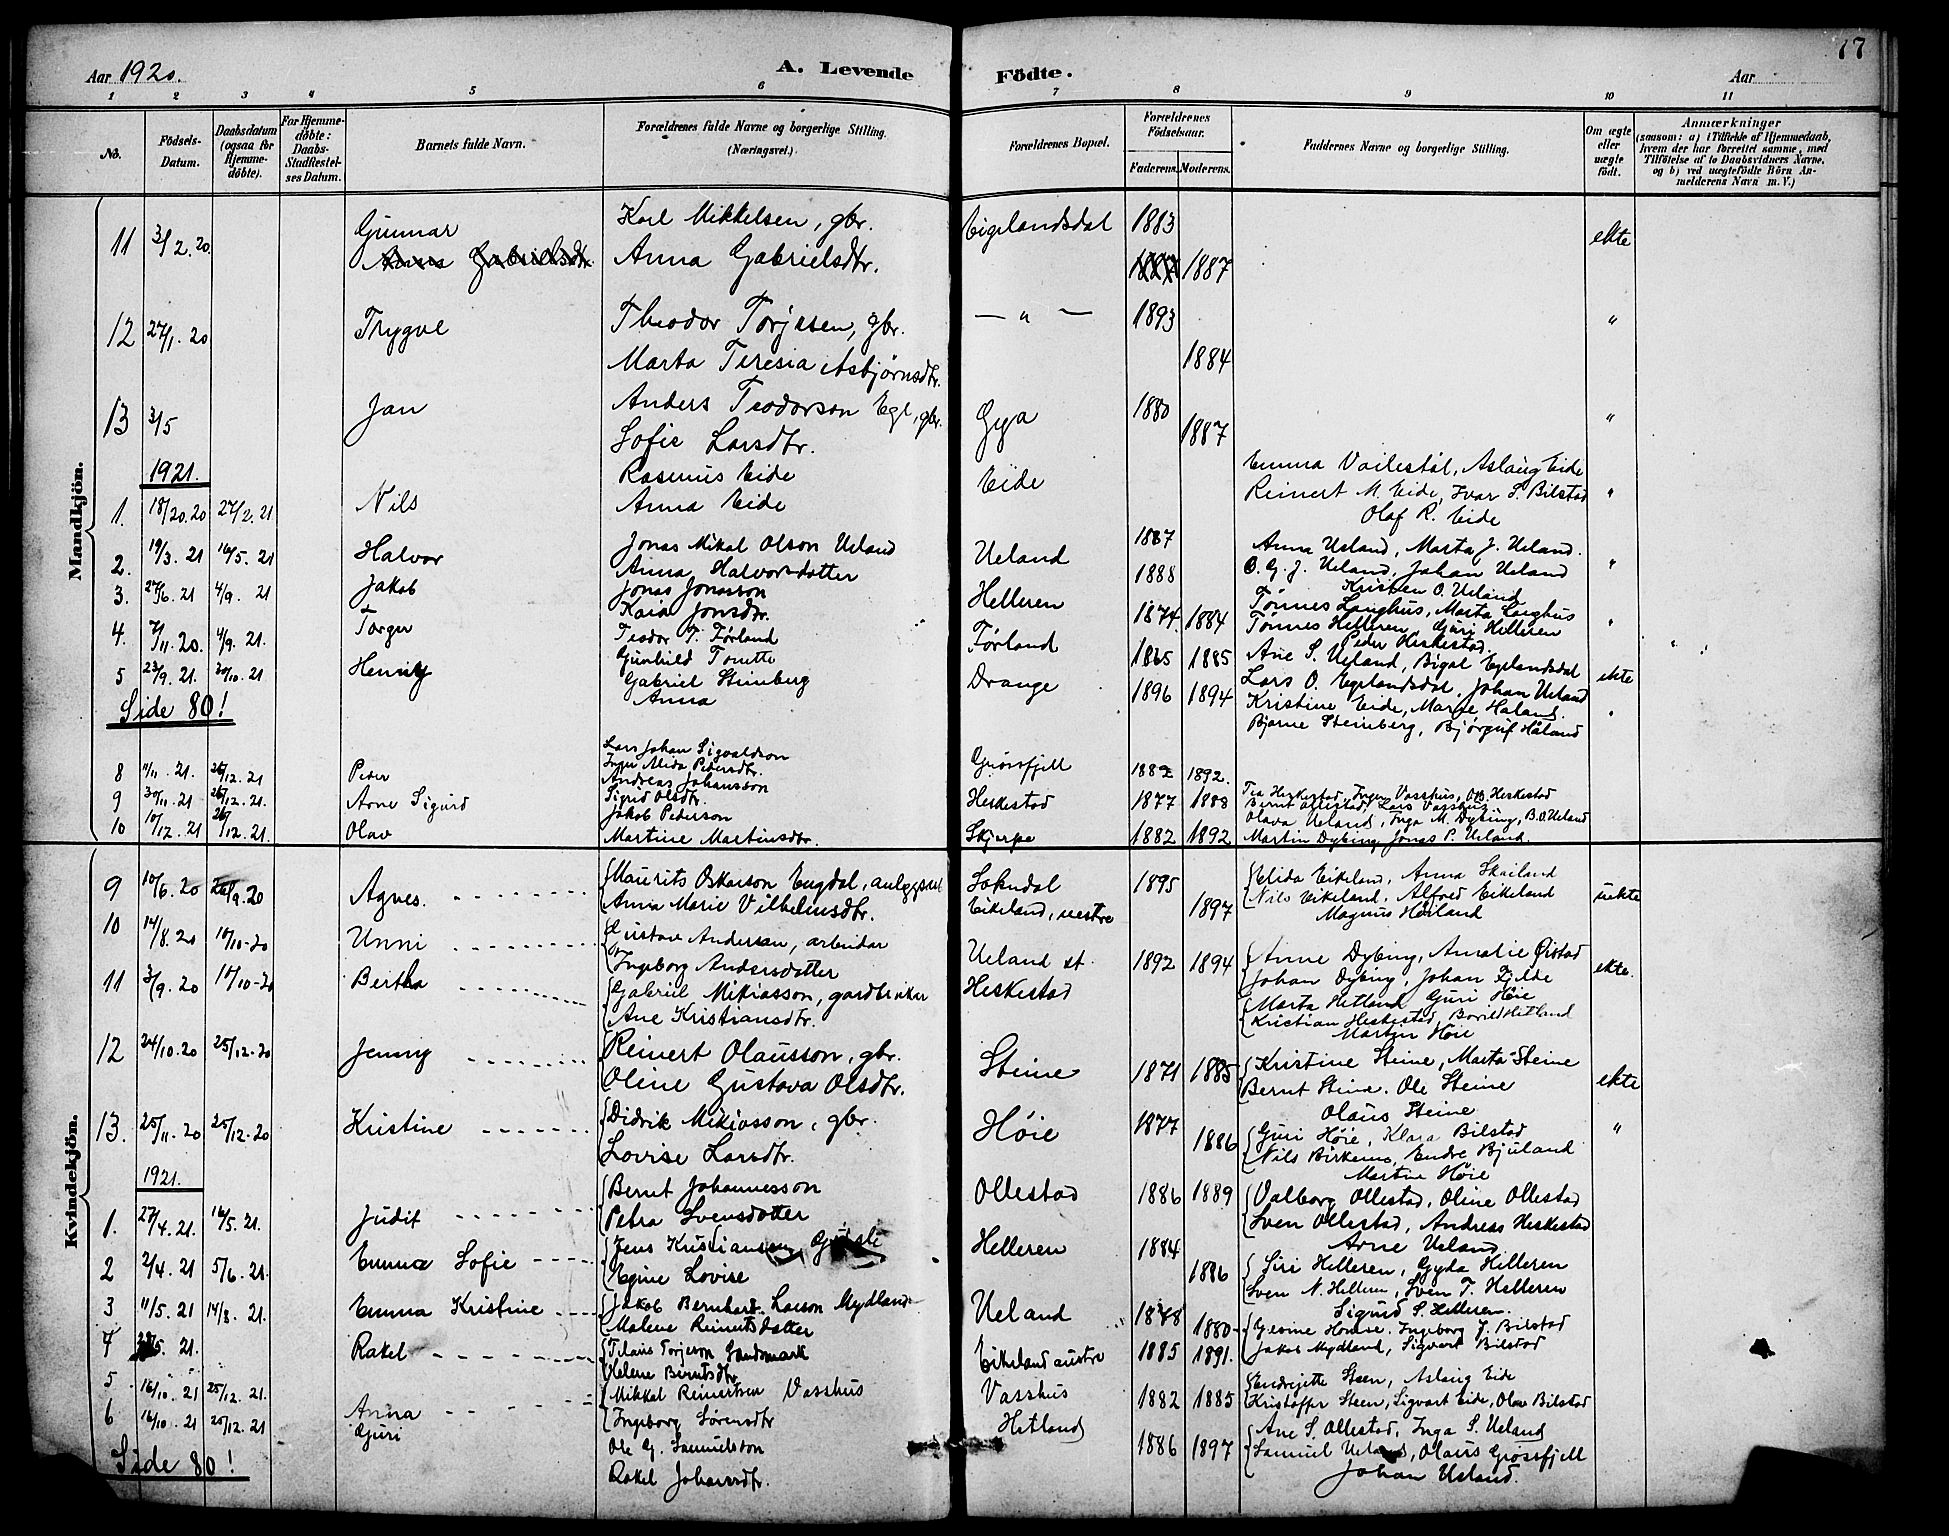 17
Aar 1920. A. Levende Födte. Aar
1 2 3 4 5 6 7 8 9 10 11
No. Födsels-Datum. Daabsdatum (ogsaa for Hjemmedöbte). For Hjemmedöbte: Daabs-Stadfæstelses Datum. Barnets fulde Navn. Forældrenes fulde Navne og borgerlige Stilling. (Næringsvei.) Forældrenes Bopæl. Forældrenes Födselsaar. Faderens. Moderens. Faddernes Navne og borgerlige Stilling. Om ægte eller uægte födt. Anmærkninger (saasom: a) i Tilfælde af Hjemmedaab, hvem der har forrettet samme, med Tilföielse af to Daabsvidners Navne, og b) ved uægtefödte Börn Anmelderens Navn m. V.)
Mandkjön.
11 3/2.20 Gunnar Karl Mikkelsen, gbr. Eigelandsdal 1883 ekte
Anna Gabrielsdtr. 1887
12 27/1.20 Trygve Theodor Torjesen, gbr. — " — 1893 "
Marta Teresia Asbjørnsdtr. 1884
13 3/5 Jan Anders Teodorson Ege, gbr. Gya 1880 "
Sofie Larsdtr. 1887
1921.
1. 18/20.20 27/2.21 Nils Rasmus Eide Eide Emma Vailestøl, Aslaug Eide
Anna Eide Reinert M. Eide, Ivar S. Bilstad "
Olaf R. Eide
2. 19/3.21 16/5.21 Halvor Jonas Mikal Olson Ueland Ueland 1887 Anna Ueland, Marta J. Ueland.
Anna Halvorsdatter 1888 O. G. J. Ueland, Johan Ueland "
Kristen O. Ueland
3. 27/6.21 4/9. 21 Jakob Jonas Jonasson Helleren 1874 1884 Tønnes Langhus, Marta Langhus
Kaia Jonsdtr. Tønnes Helleren, Guri Helleren "
Peder Heskestad
4. 7/11.20. 4/9.21. Torger Teodor T. Førland Førland 1865 1885 Ane S. Ueland, Bigal Egelandsdal
Gunhild Tonette Lars O. Egelandsdal, Johan Ueland ekte
5 23/9.21. 30/10.21 Henrik Gabriel Steinberg Drange 1896 1894 Kristine Eide, Marie Haland.
Anna Bjarne Steinberg, Bjørguf Håland "
Side 80!
8 11/11.21. 26/12.21 Peder Lars Johan Sigvaldson Grøssfjell 1882 1892.
Inger Alida Pedersdtr.
9 30/11.21 26/12.21. Arne Sigurd Andreas Johansson Heskestad 1877 1888 Tea Heskestad, Inger Vasshus, O.B. Heskestad
Sigrid Olsdtr. Bernt Ollestad, Lars Vasshus
10 10/12.21 26/12.21. Olav Jakob Pederson Skjerpe 1882 1892 Olava Ueland, Inga M. Dybing, B.O. Ueland
Martine Martinsdtr. Martin Dybing, Jonas P. Ueland.
Kvindekjön.
9 10/6.20 26/9.20 Agnes. Maurits Oskarson Eugdal, Sokndal 1895 Elida Eikeland, Anna Skailand
Anna Marie Vilhelmsdtr. Eikeland, vestre 1897 Nils Eikeland, Alfred Eikeland uekte
Magnus Høiland
10 14/8.20 10/10-20 Unni Gustav Andersen, arbeidar Ueland st. 1892 1894 Anne Dybing, Amalie Øistad
Ingeborg Andersdatter Johan Dybing, Johan Fjelde ekte.
11 3/9.20 17/10-20 Bertha Gabriel Mikiasson, gardbruker Heskestad Marta Hetland, Guri Høie
Ane Kristiansdtr. Kristian Heskestad, Bovild Hetland
Martin Høie
12 24/10.20 25/12-20 Jenny Reinert Olausson, gbr. Steine 1871 1885 Kristine Steine, Marta Steine
Oline Gustava Olsdtr. Bernt Steine. Ole Steine ekte
Olaus Steine
13. 25/11.20 25/12-20 Kristine Didrik Mikiasson, gbr. Høie 1877 1886 Guri Høie, Klara Bilstad "
Lovise Larsdtr. Nils Birkemo, Endre Bjuland
Martin Høie
1921.
1. 27/4.21. 16/5.21. Judit Bernt Johannesson Ollestad 1886 1889 Valborg Ollestad, Oline Ollestad
Petra Svensdatter Sven Ollestad, Andreas Heskestad
Arne Ueland
2 2/4.21 5/6.21. Emma Sofie Jens Kristiansen Helleren 1884 Siri Helleren, Gyda Helleren
Egine Lovise 1886 Sven N. Helleren, Sven T. Helleren
Sigurd S. Helleren.
3 11/5.21 14/8.21. Emma Kristine Jakob Bernhard Larson Mydland Ueland 1878 1880 Gesine Homse. Ingeborg J. Bilstad
Malene Reinertsdatter Jakob Mydland, Sigvart Bilstad
4 5.21. Rakel Tilaus Torjeson Sandsmark Eikeland austre 1885 1891.
Helene Berntsdtr
5 16/10.21 25/12.21. Anna Mikkal Reinertsen Vasshus Vasshus 1882 1885 Endrejette Steen, Aslaug Eide
Ingeborg Sørensdtr Kristoffer Steen, Sigvart Eide, Olav Bilstad
6 16/10.21 25/12.21 Guri Ole G. Samuelsson Hetland 1886 1897 Ane S. Ollestad, Inga S. Ueland
Rakel Johansdtr. Samuel Ueland, Olaus Grøssfjell
Johan Ueland.
Side 80!